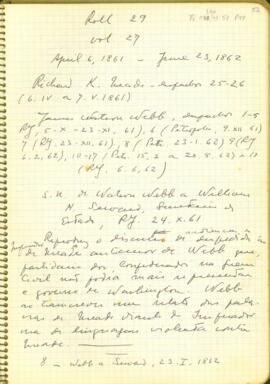 Roll 29
vol 27
April 6, 1861 – June 23, 1862
Richard K. Meade – despachos 25-26
(6. IV a 7. V. 1861)
James Watson Webb, despachos 1-5
RJ, 5-X - 23-XI, 61), 6 (Petropolis, 7. XII 61)
7 (RJ, 23-XII, 61), 8 (Petr. 23-1. 62) 9 (RJ
6, 2, 62), 10-17 (Petr.
(RJ, 6. 6. 62)
s. n. de Watson Webb a William
H. Seward, Secretário de
Estado, RJ 24. X. 61
Reproduz o discurso de despedida
de Meade antecessor de Webb que,
partidário dos Confederados na guerra
Civil não podia mais representar
o governo de Washington. Webb
um relato das pala-
vras de Meade diante do Imperador
uma de linguagem violenta contra
Meade.
8 – Webb a Seward, 23. I. 1862